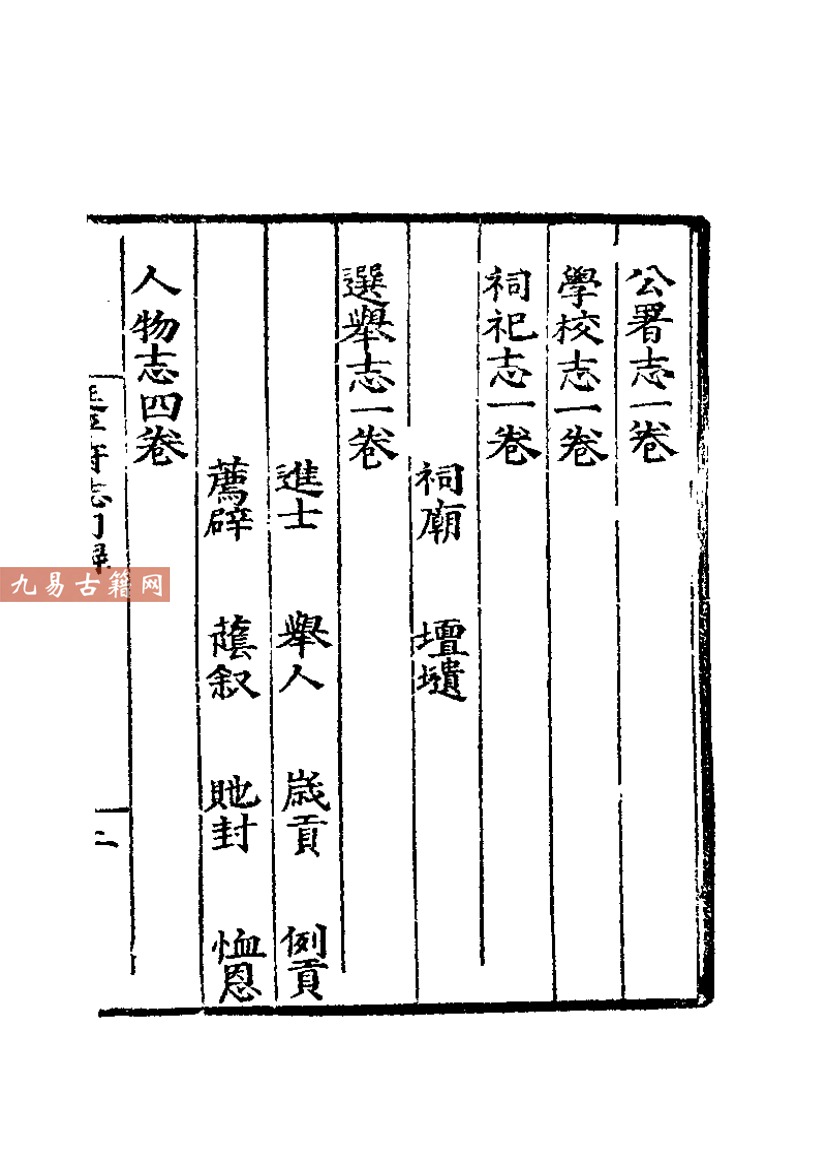 公署志一卷
學校志一卷
祠祀志一卷
祠廟 壇壝
選舉志一卷
進士 舉人 歲貢 例貢
薦辟 蔭叙 貤封 恤恩
人物志四卷
二
九易古籍网